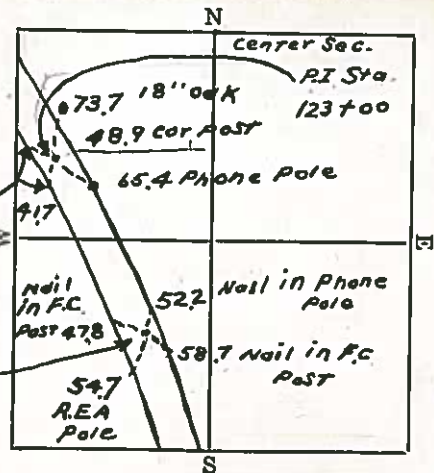 N
Center Sec.
P.I Sta
123+00
73.7 18" oak
48.9 cor post
65.4 Phone Pole
41.7
E
Nail
in F.C.
Post 47.8
52.2 Nail in Phone
Pole
58.7 Nail in F.C
Post
54.7
R.E.A
Pole
S